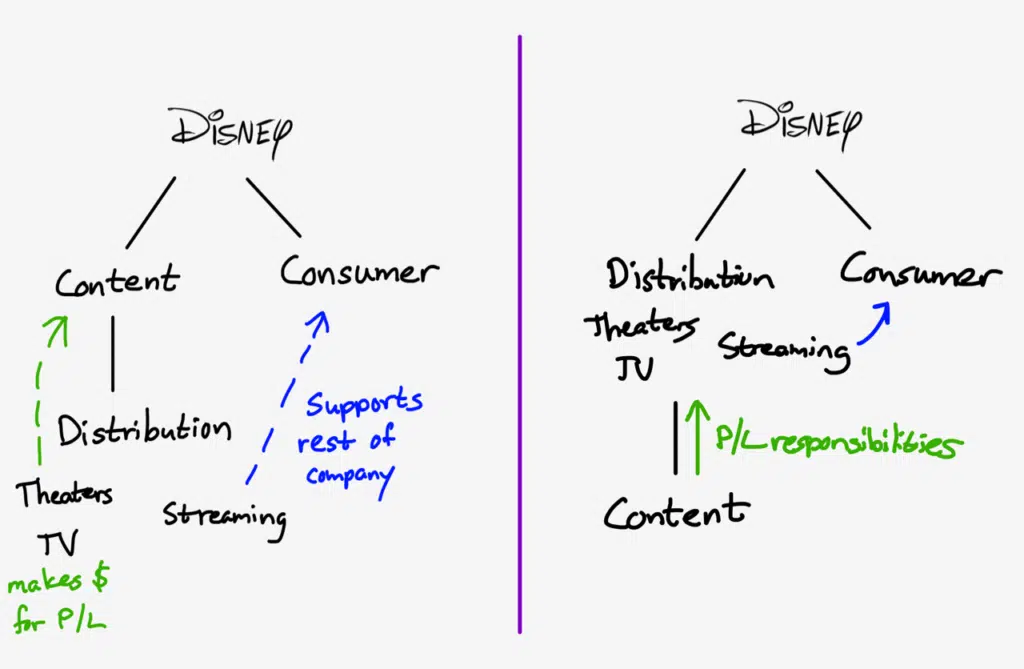 DISNEY
Content
Consumer
Distribution
Theaters
TV
makes $
for P/L
Streaming
Supports
rest of
company
DISNEY
Distribution
Consumer
Theaters
TV
Streaming
P/L responsibilities
Content